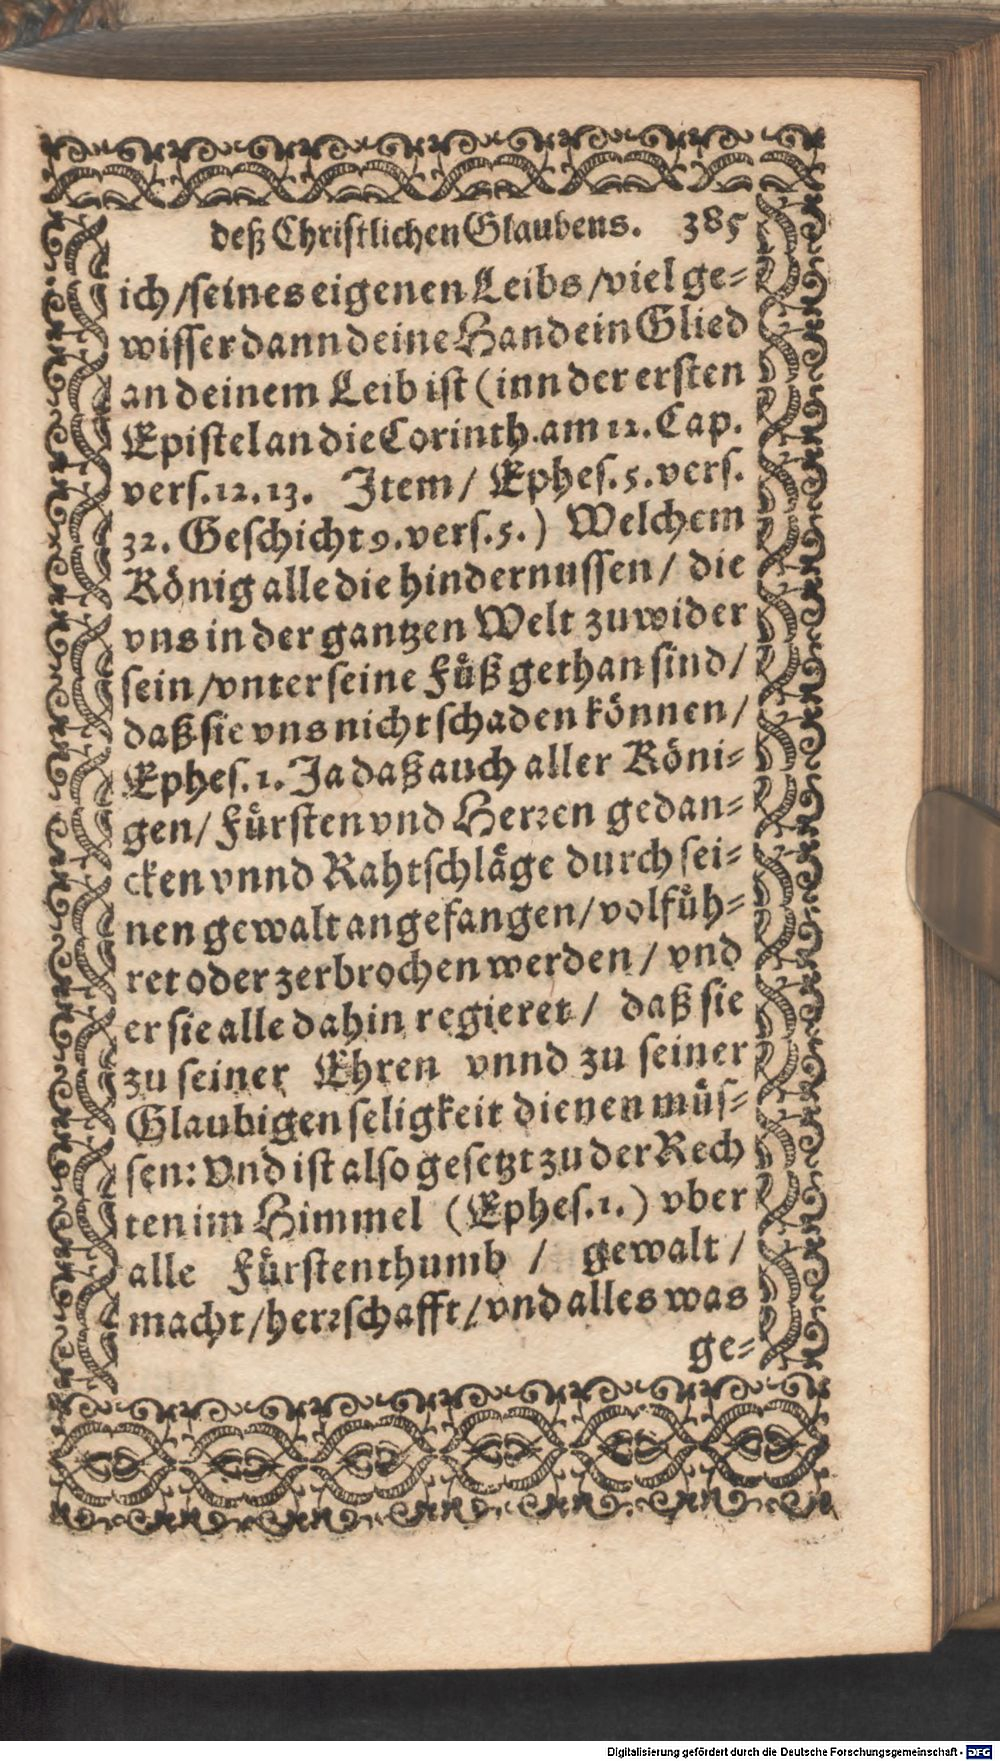 deß Christlichen Glaubens. 385
ich /seines eigenen Leibs /viel ge-
wisser dann deine Hand ein Glied
an deinem Leib ist (inn der ersten
Epistel an die Corinth. am 12. Cap.
vers. 12. 13. Item / Ephes. 5. vers.
32. Geschicht 9. vers. 5.) Welchem
König alle die hindernussen / die
vns in der gantzen Welt zuwider
sein /vnter seine Füß gethan sind/
daß sie vns nicht schaden können /
Ephes. 1. Ja daß auch aller Köni-
gen/ Fürsten vnd Herren gedan-
cken vnnd Rahtschläge durch sei-
nen gewalt angefangen/ volfüh-
ret oder zerbrochen werden / vnd
er sie alle dahin regieret / daß sie
zu seiner Ehren vnnd zu seiner
Glaubigen seligkeit dienen müs-
sen: Vnd ist also gesetzt zu der Rech
ten im Himmel (Ephes. 1.) vber
alle Fürstenthumb / gewalt /
macht /herrschafft / vnd alles was
ge-
Digitalisierung gefördert durch die Deutsche Forschungsgemeinschaft - DFG